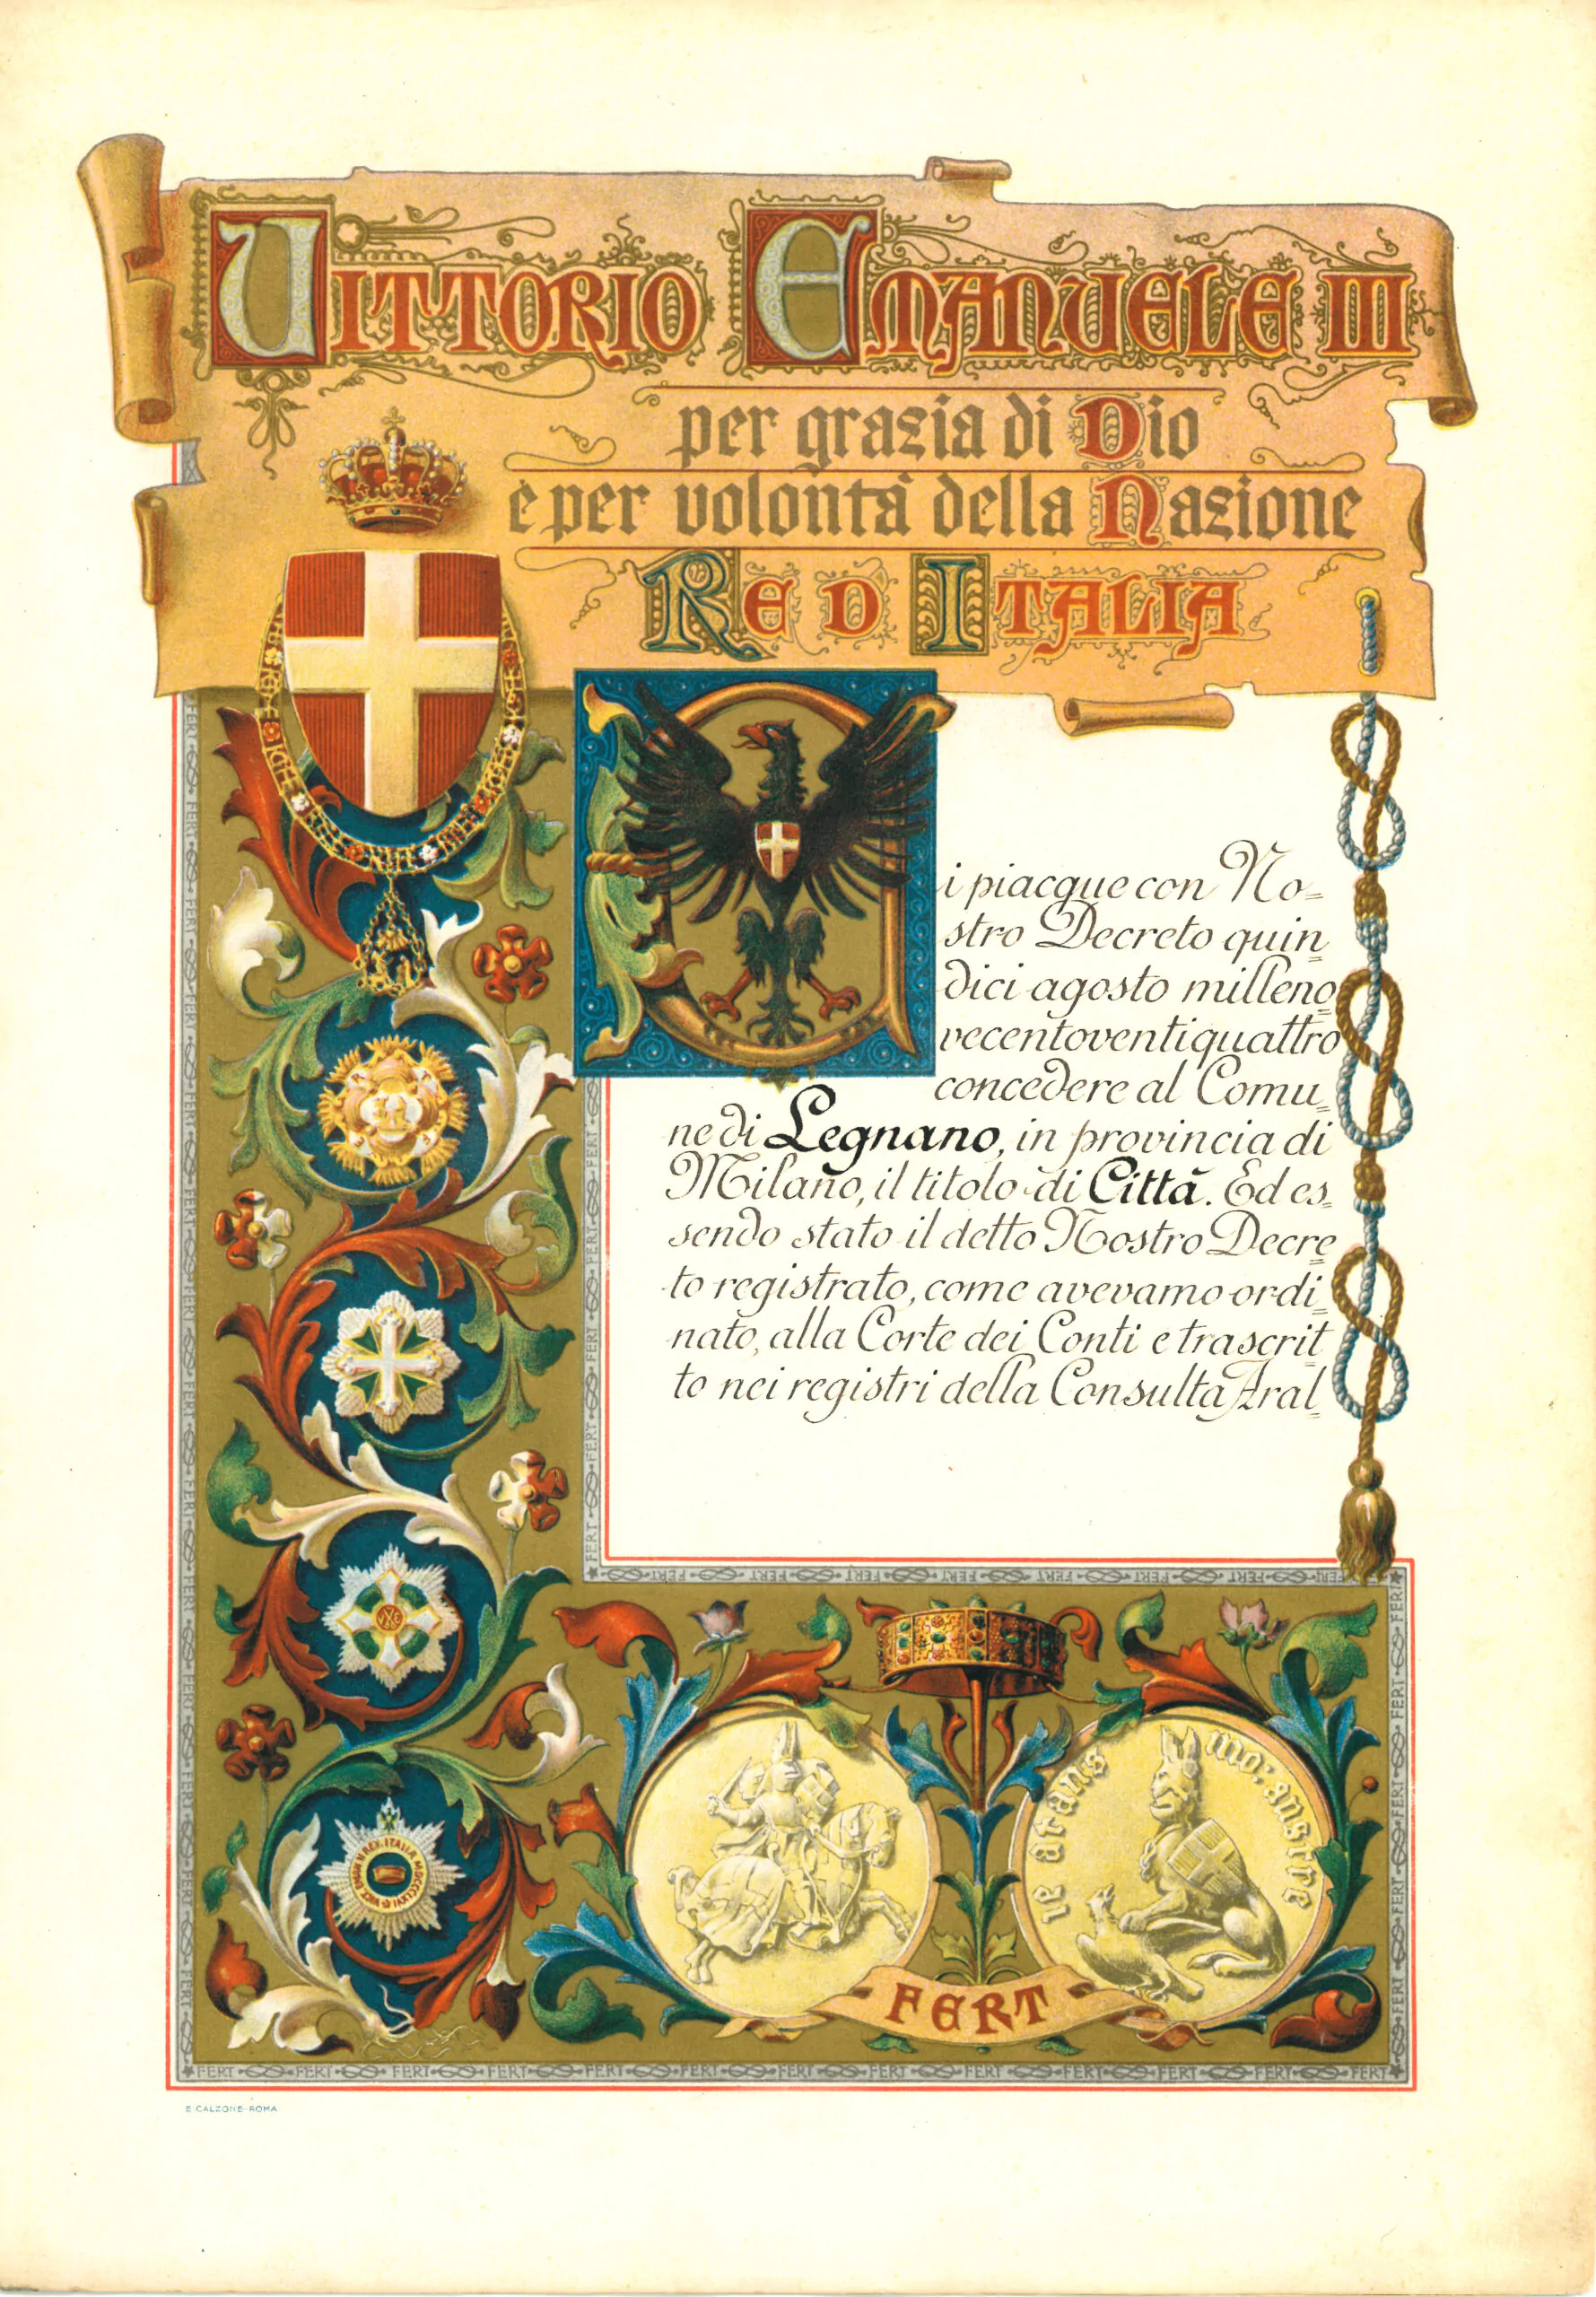 VITTORIO EMANUELE III
per grazia di Dio
e per volontà della Nazione
RE D ITALIA
Ci piacque con No=
stro Decreto quin=
dici agosto milleno=
vecentoventiquattro
concedere al Comu=
ne di Legnano, in provincia di
Milano, il titolo di Città. Ed es=
sendo stato il detto Nostro Decre=
to registrato, come avevamo ordi=
nato, alla Corte dei Conti e trascrit=
to nei registri della Consulta Aral=
FERT
E. CALZONE-ROMA